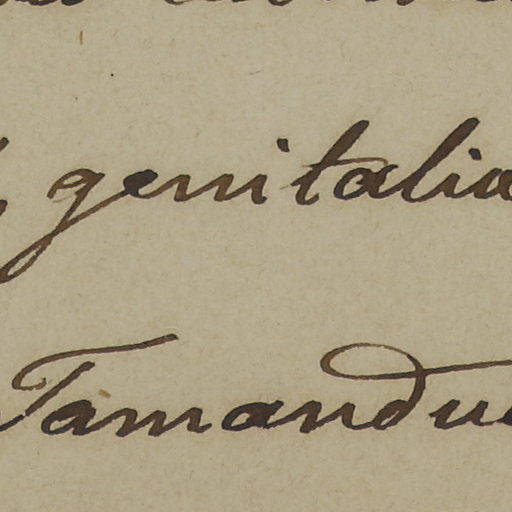 genitalia
Tamandua